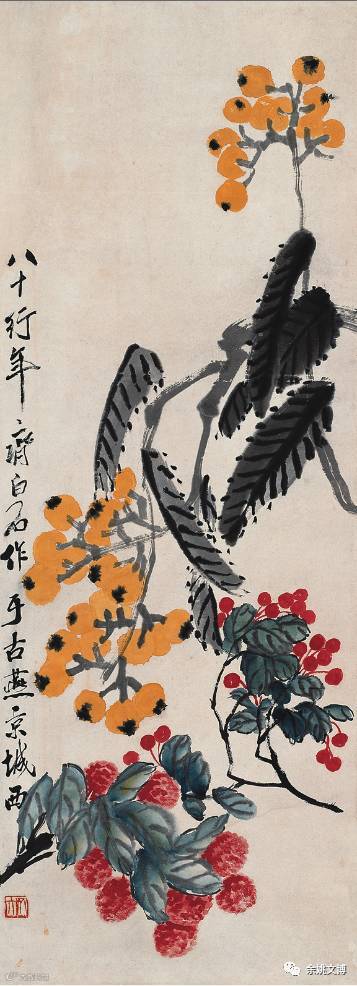 八十行年齊白石作于古燕京城西
余姚文博